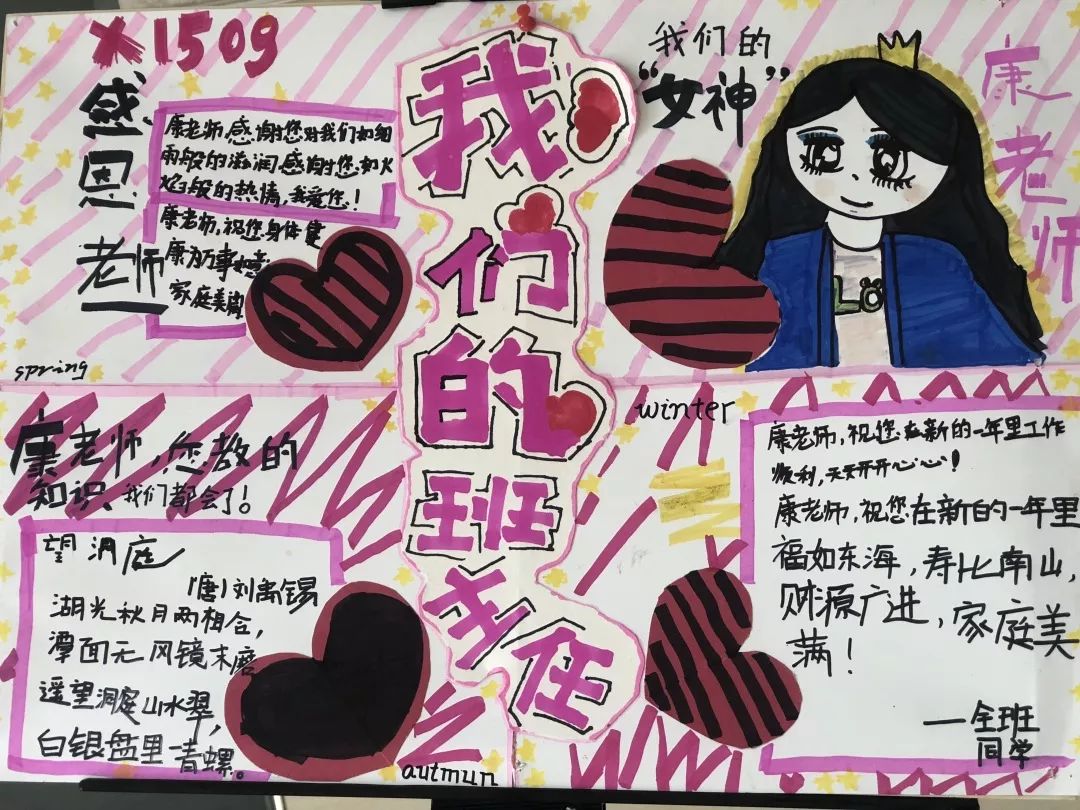 1509
感恩
老师
康老师,感谢您对我们如细
雨般的滋润,感谢您如火
焰般的热情,我爱您!
康老师,祝您身体健
康万事如意
家庭美满
spring
我们的班主任
我们的
“女神”
康老师
LO
康老师,您教的
知识我们都会了!
望洞庭
(唐)刘禹锡
湖光秋月两相合,
潭面无风镜未磨
遥望洞庭山水翠,
白银盘里一青螺。
autmun
winter
康老师,祝您在新的一年里工作
顺利,天天开开心心!
康老师,祝您在新的一年里
福如东海,寿比南山,
财源广进,家庭美
满!
——全班
同学